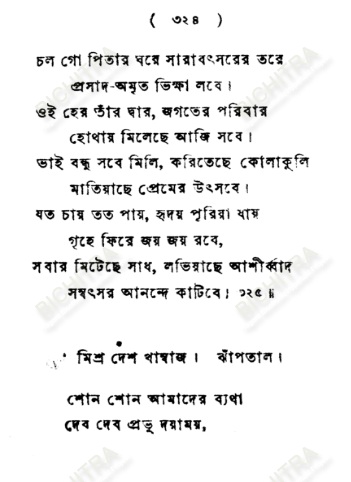 ( ৩২৪ )
চল গো পিতার ঘরে সারাবৎসরের তরে
প্রসাদ-অমৃত ভিক্ষা লবে।
ওই হের তাঁর দ্বার, জগতের পরিবার
হোথায় মিলেছে আজি সবে।
ভাই বন্ধু সবে মিলি, করিতেছে কোলাকুলি
মাতিয়াছে প্রেমের উৎসবে।
যত চায় তত পায়, হৃদয় পূরিয়া যায়
গৃহে ফিরে জয় জয় রবে,
সবার মিটেছে সাধ, লভিয়াছে আশীর্ব্বাদ
সম্বৎসর আনন্দে কাটিবে। ১২৫ ॥
মিশ্র দেশ খাম্বাজ। ঝাঁপতাল।
শোন শোন আমাদের ব্যথা
দেব দেব প্রভু দয়াময়,
BICHITRA